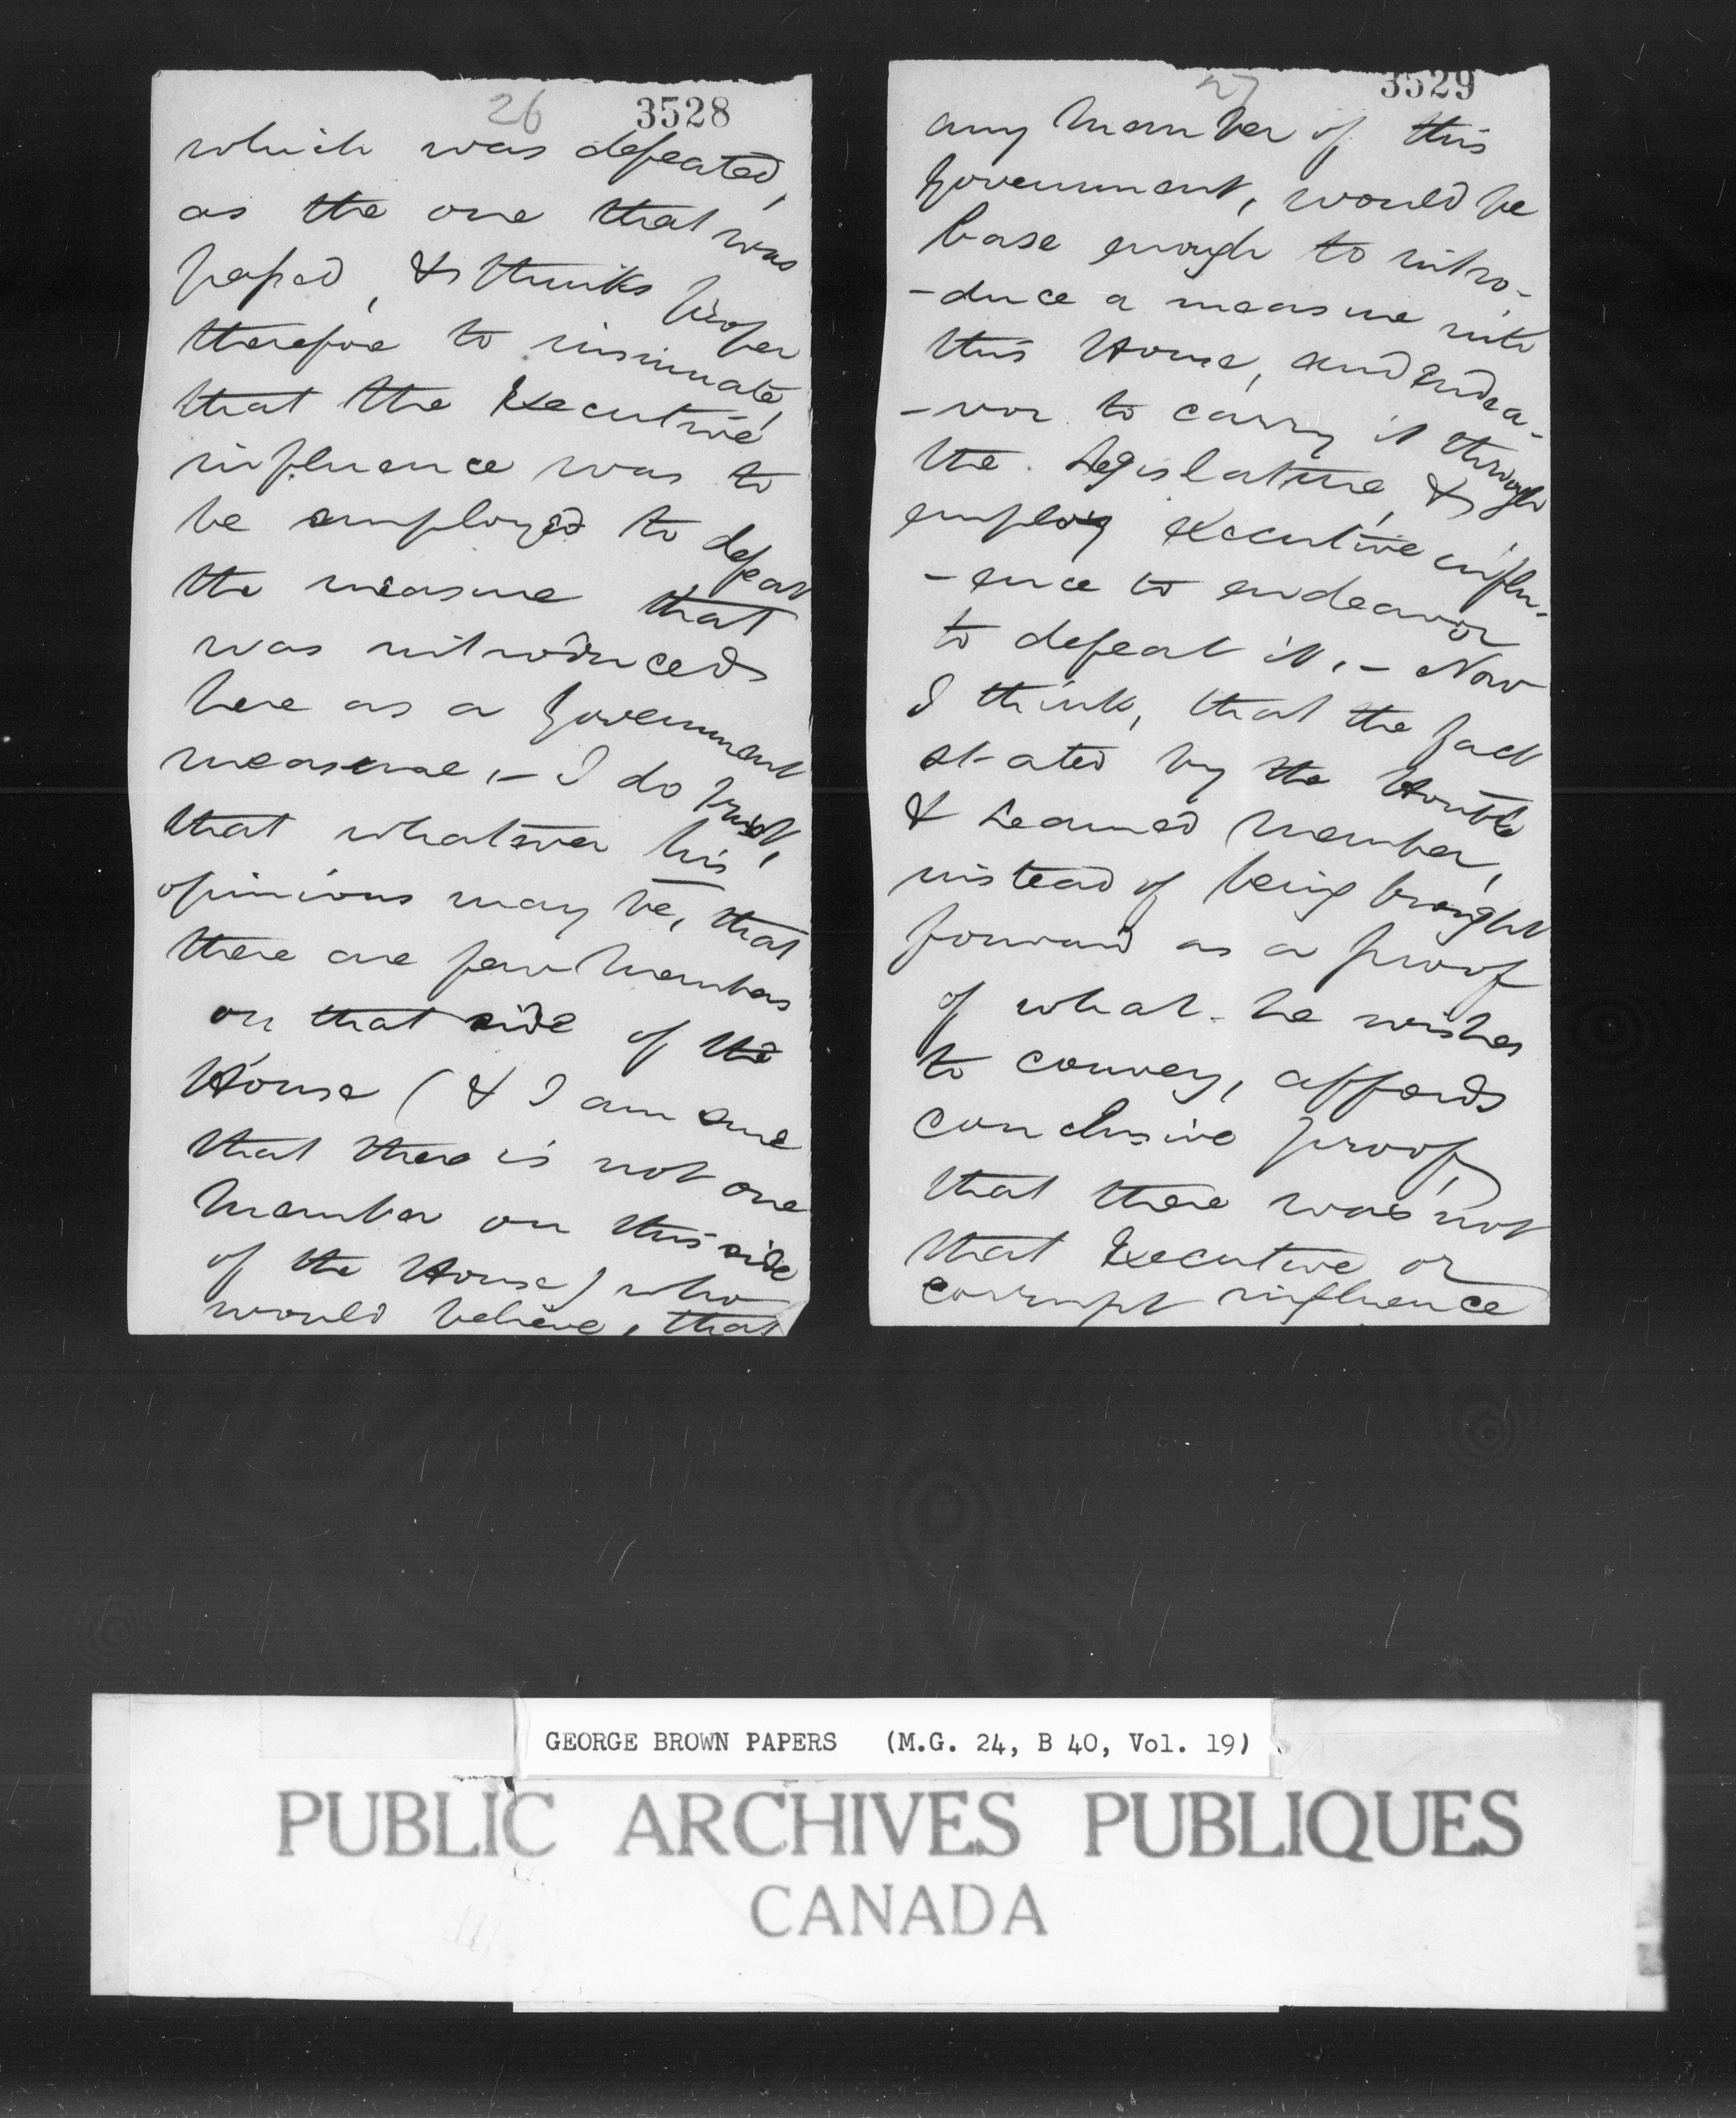 26 3528
which was defeated,
as the one that was
passed, & thinks proper
therefore to insinuate,
that the Executive
influence was to
be employed to defeat
the measure that
was introduced
here as a Government
measure, – I do trust,
that whatever his
opinions may be, that
there are few Members
on that side of the
House ( & I am sure
that there is not one
Member on this side
of the House) who
would believe, that
27 3529
any Member of this
Government, would be
base enough to intro-
-duce a measure into
this House, and endea-
-vor to carry it through
the Legislature, &
employ executive influ-
-ence to endeavor
to defeat it, – Now
I think, that the fact
stated by the Honble
& Learned Member,
instead of being brought
forward as a proof
of what he wishes
to convey, affords
conclusive proof,
that there was not
that Executive or
corrupt influence
GEORGE BROWN PAPERS (M.G. 24, B 40, Vol. 19)
PUBLIC ARCHIVES PUBLIQUES
CANADA